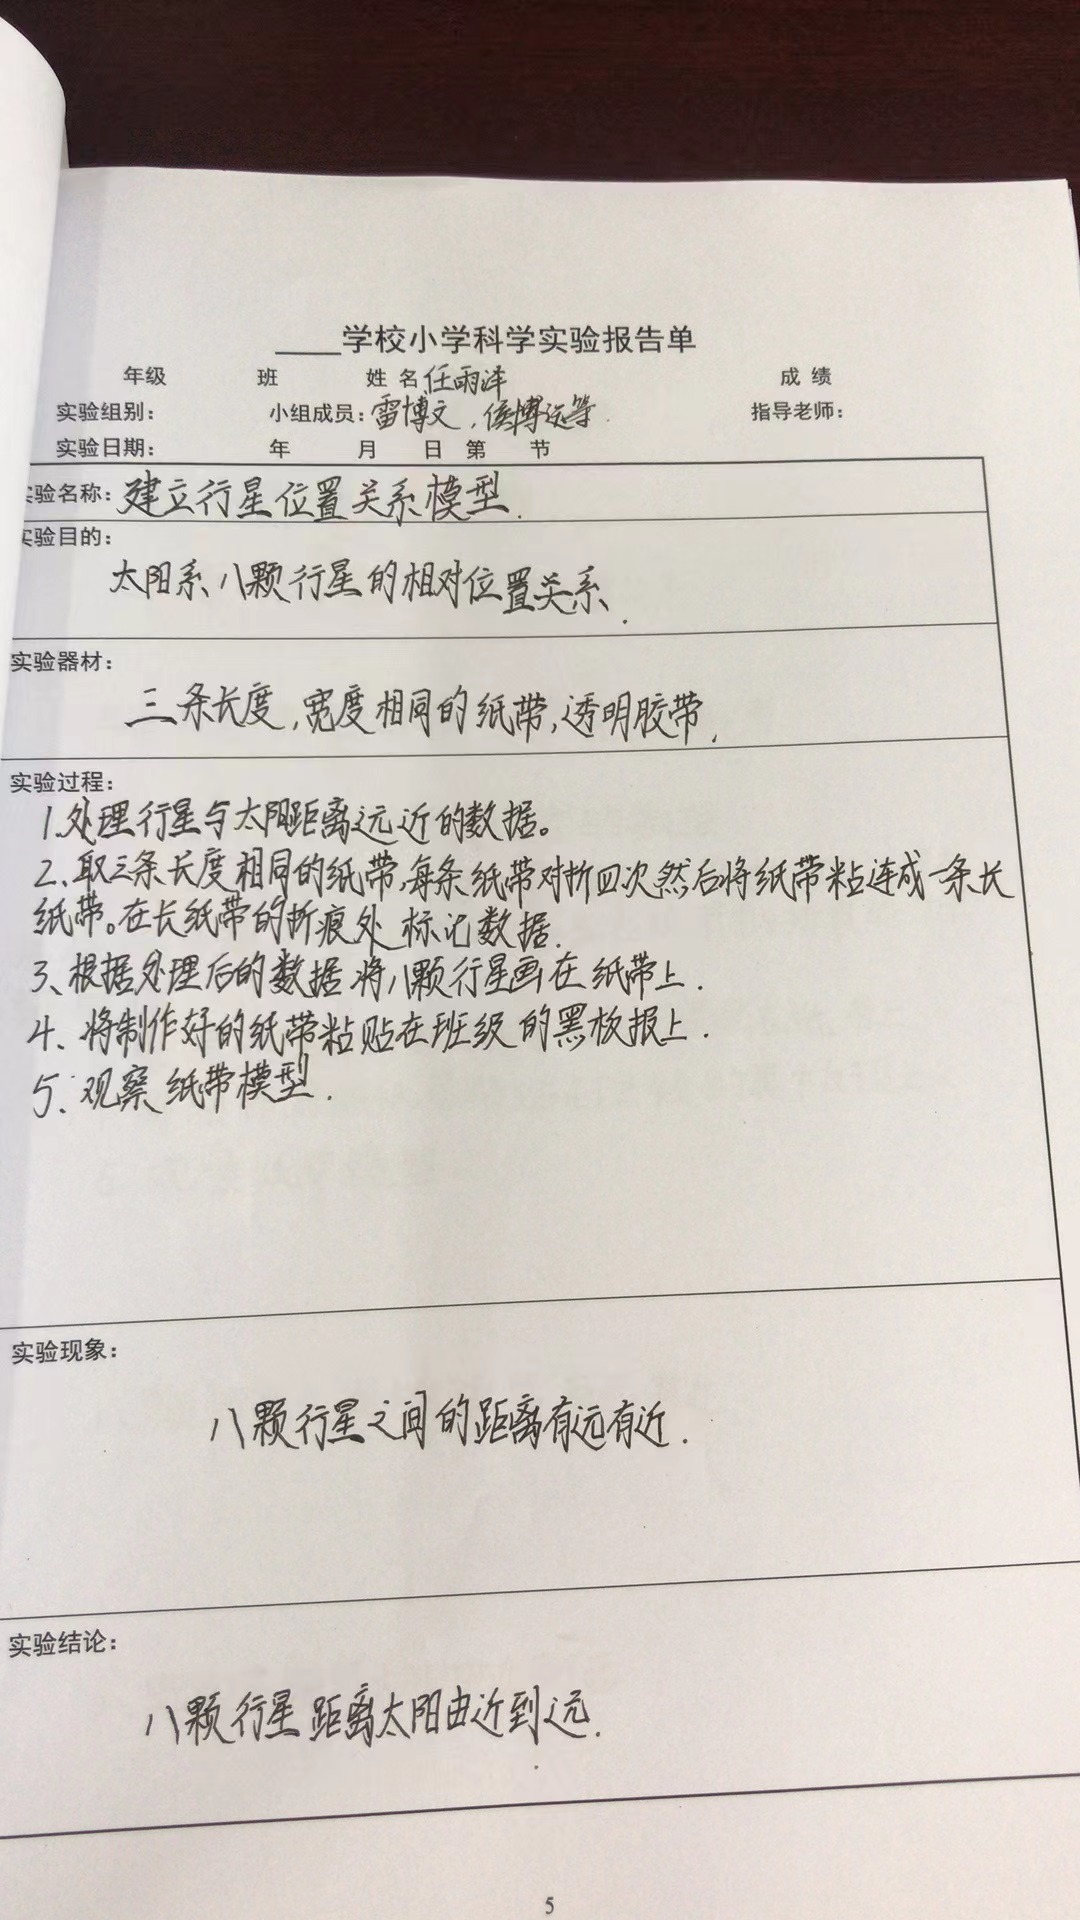 ____学校小学科学实验报告单
年级 班 姓名 任雨泽 成绩
实验组别： 小组成员：雷博文，侯博远等 指导老师：
实验日期： 年 月 日 第 节
实验名称：建立行星位置关系模型.
实验目的：
太阳系八颗行星的相对位置关系.
实验器材：
三条长度,宽度相同的纸带,透明胶带.
实验过程：
1.处理行星与太阳距离远近的数据。
2、取三条长度相同的纸带,每条纸带对折四次然后将纸带粘连成一条长
纸带。在长纸带的折痕处标记数据.
3、根据处理后的数据将八颗行星画在纸带上.
4、将制作好的纸带粘贴在班级的黑板报上.
5、观察纸带模型.
实验现象：
八颗行星之间的距离有远有近.
实验结论：
八颗行星距离太阳由近到远.
5